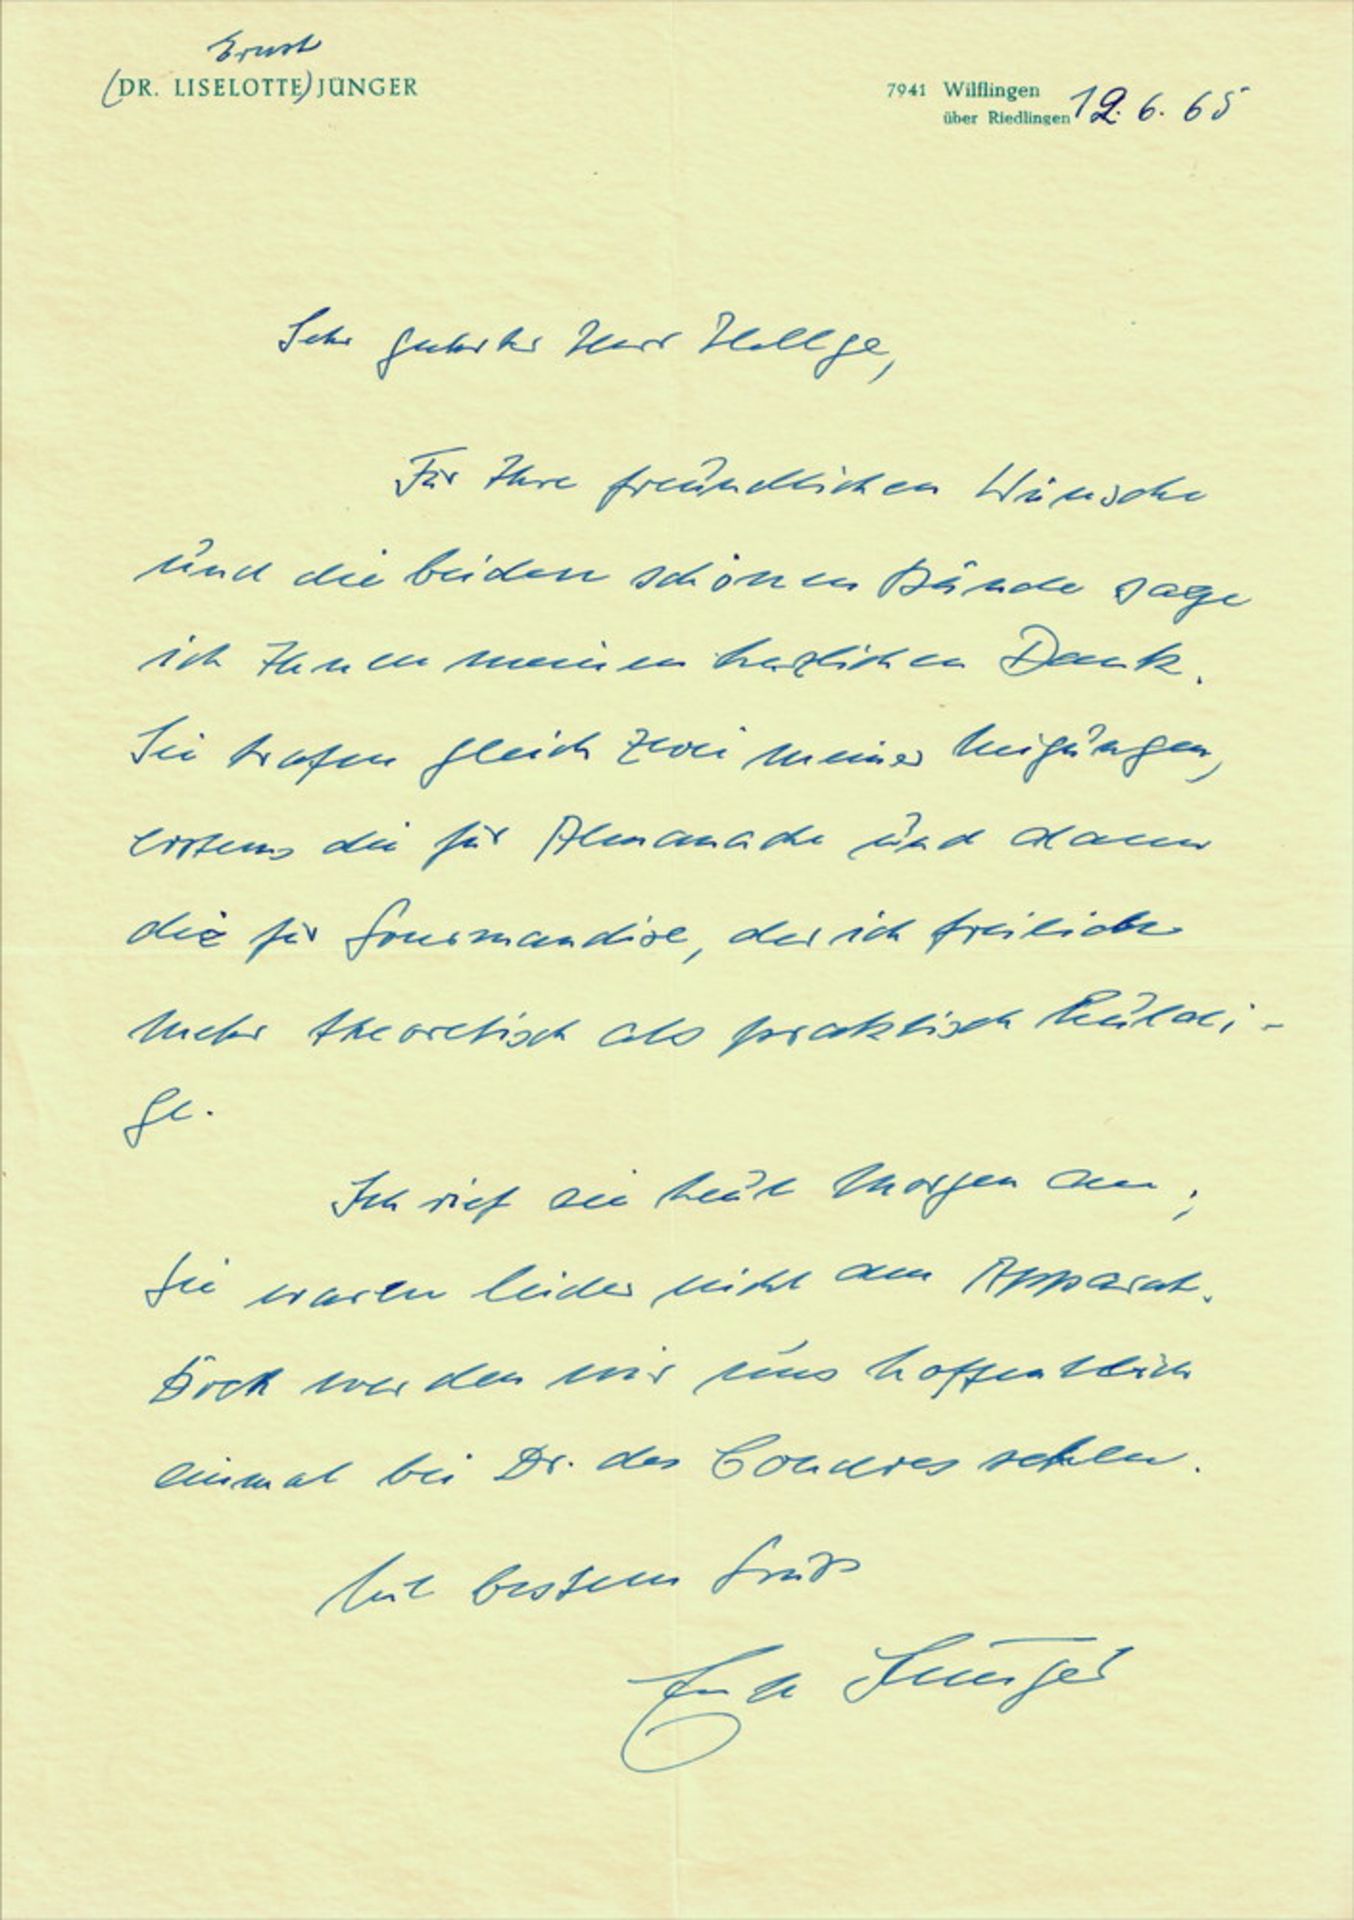 Ernst
(DR. LISELOTTE) JÜNGER
7941 Wilflingen
über Riedlingen 12. 6. 65
Sehr geehrter Herr Hellge,
Für Ihre freundlichen Wünsche
und die beiden schönen Bände sage
ich Ihnen meinen herzlichen Dank.
Sie trafen gleich zwei meiner Neigungen,
erstens die für Almanache und dann
die für Gourmandise, der ich freilich
mehr theoretisch als praktisch huldi-
ge.
Ich rief Sie heute Morgen an;
Sie waren leider nicht am Apparat.
Doch werden wir uns hoffentlich
einmal bei Dr. des Coudres sehen.
Mit bestem Gruß
Ernst Jünger